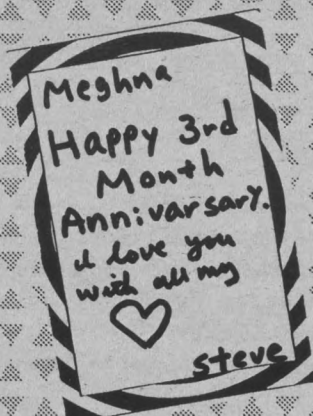 Meghna
Happy 3rd
Month
Annivarsary.
I love you
with all my
steve